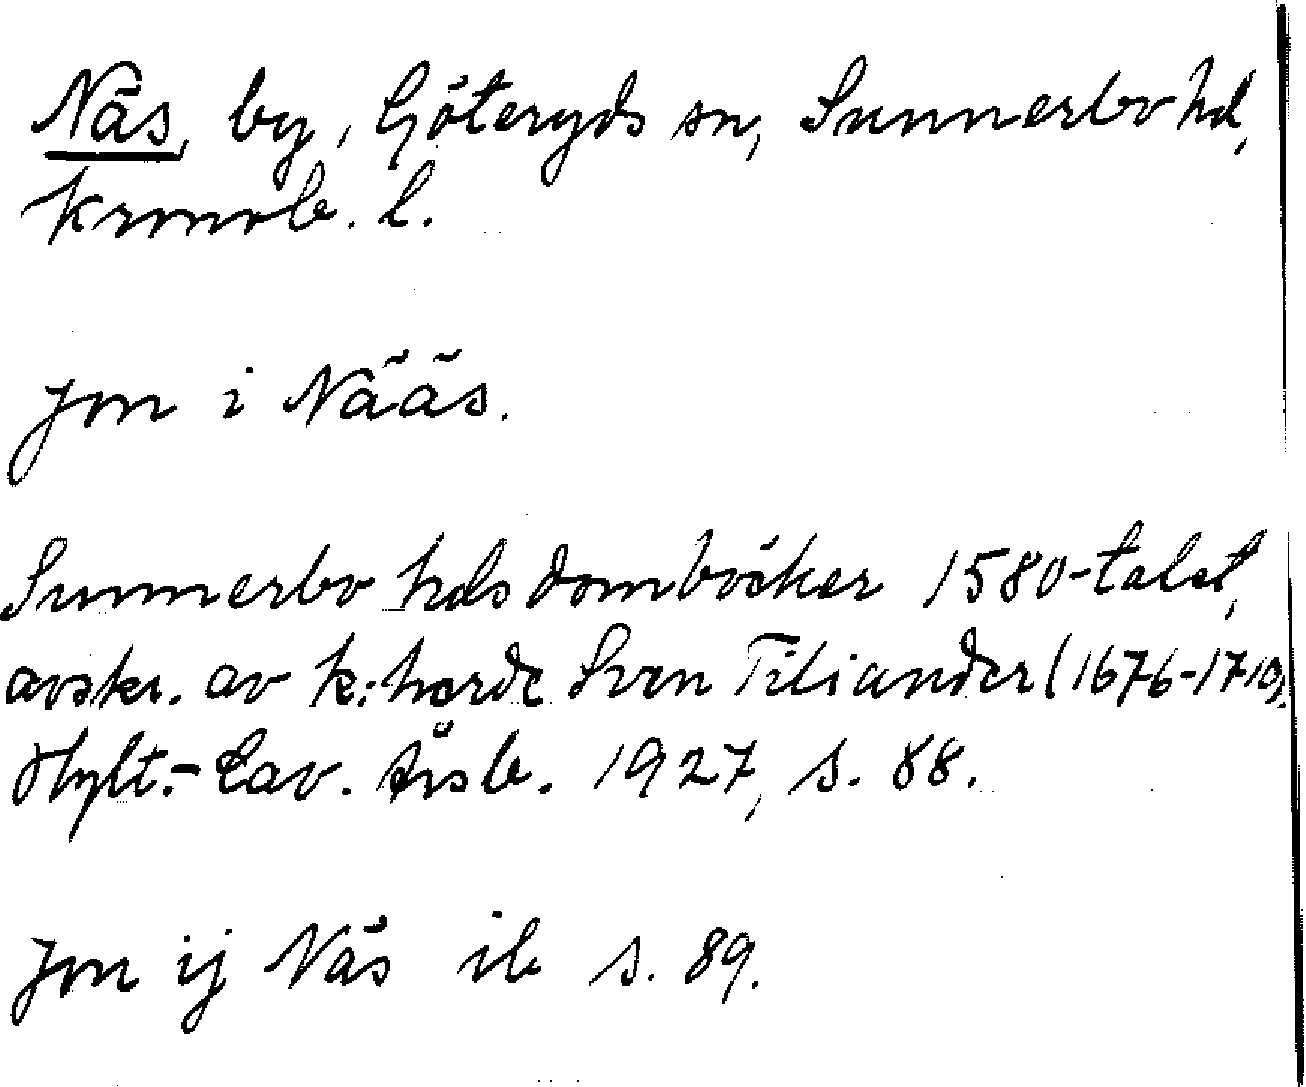 Näs, by, Göteryds sn, Sunnerbo hd,
Kronob. l.
Jon i Nääs.
Sunnerbo hds domböcker 1580-talet,
avskr. av k.-herde Sven Tiliander (1676-1710),
Hylt.-Cav. Årsb. 1927, s. 88.
Jon ij Näs ib s. 89.